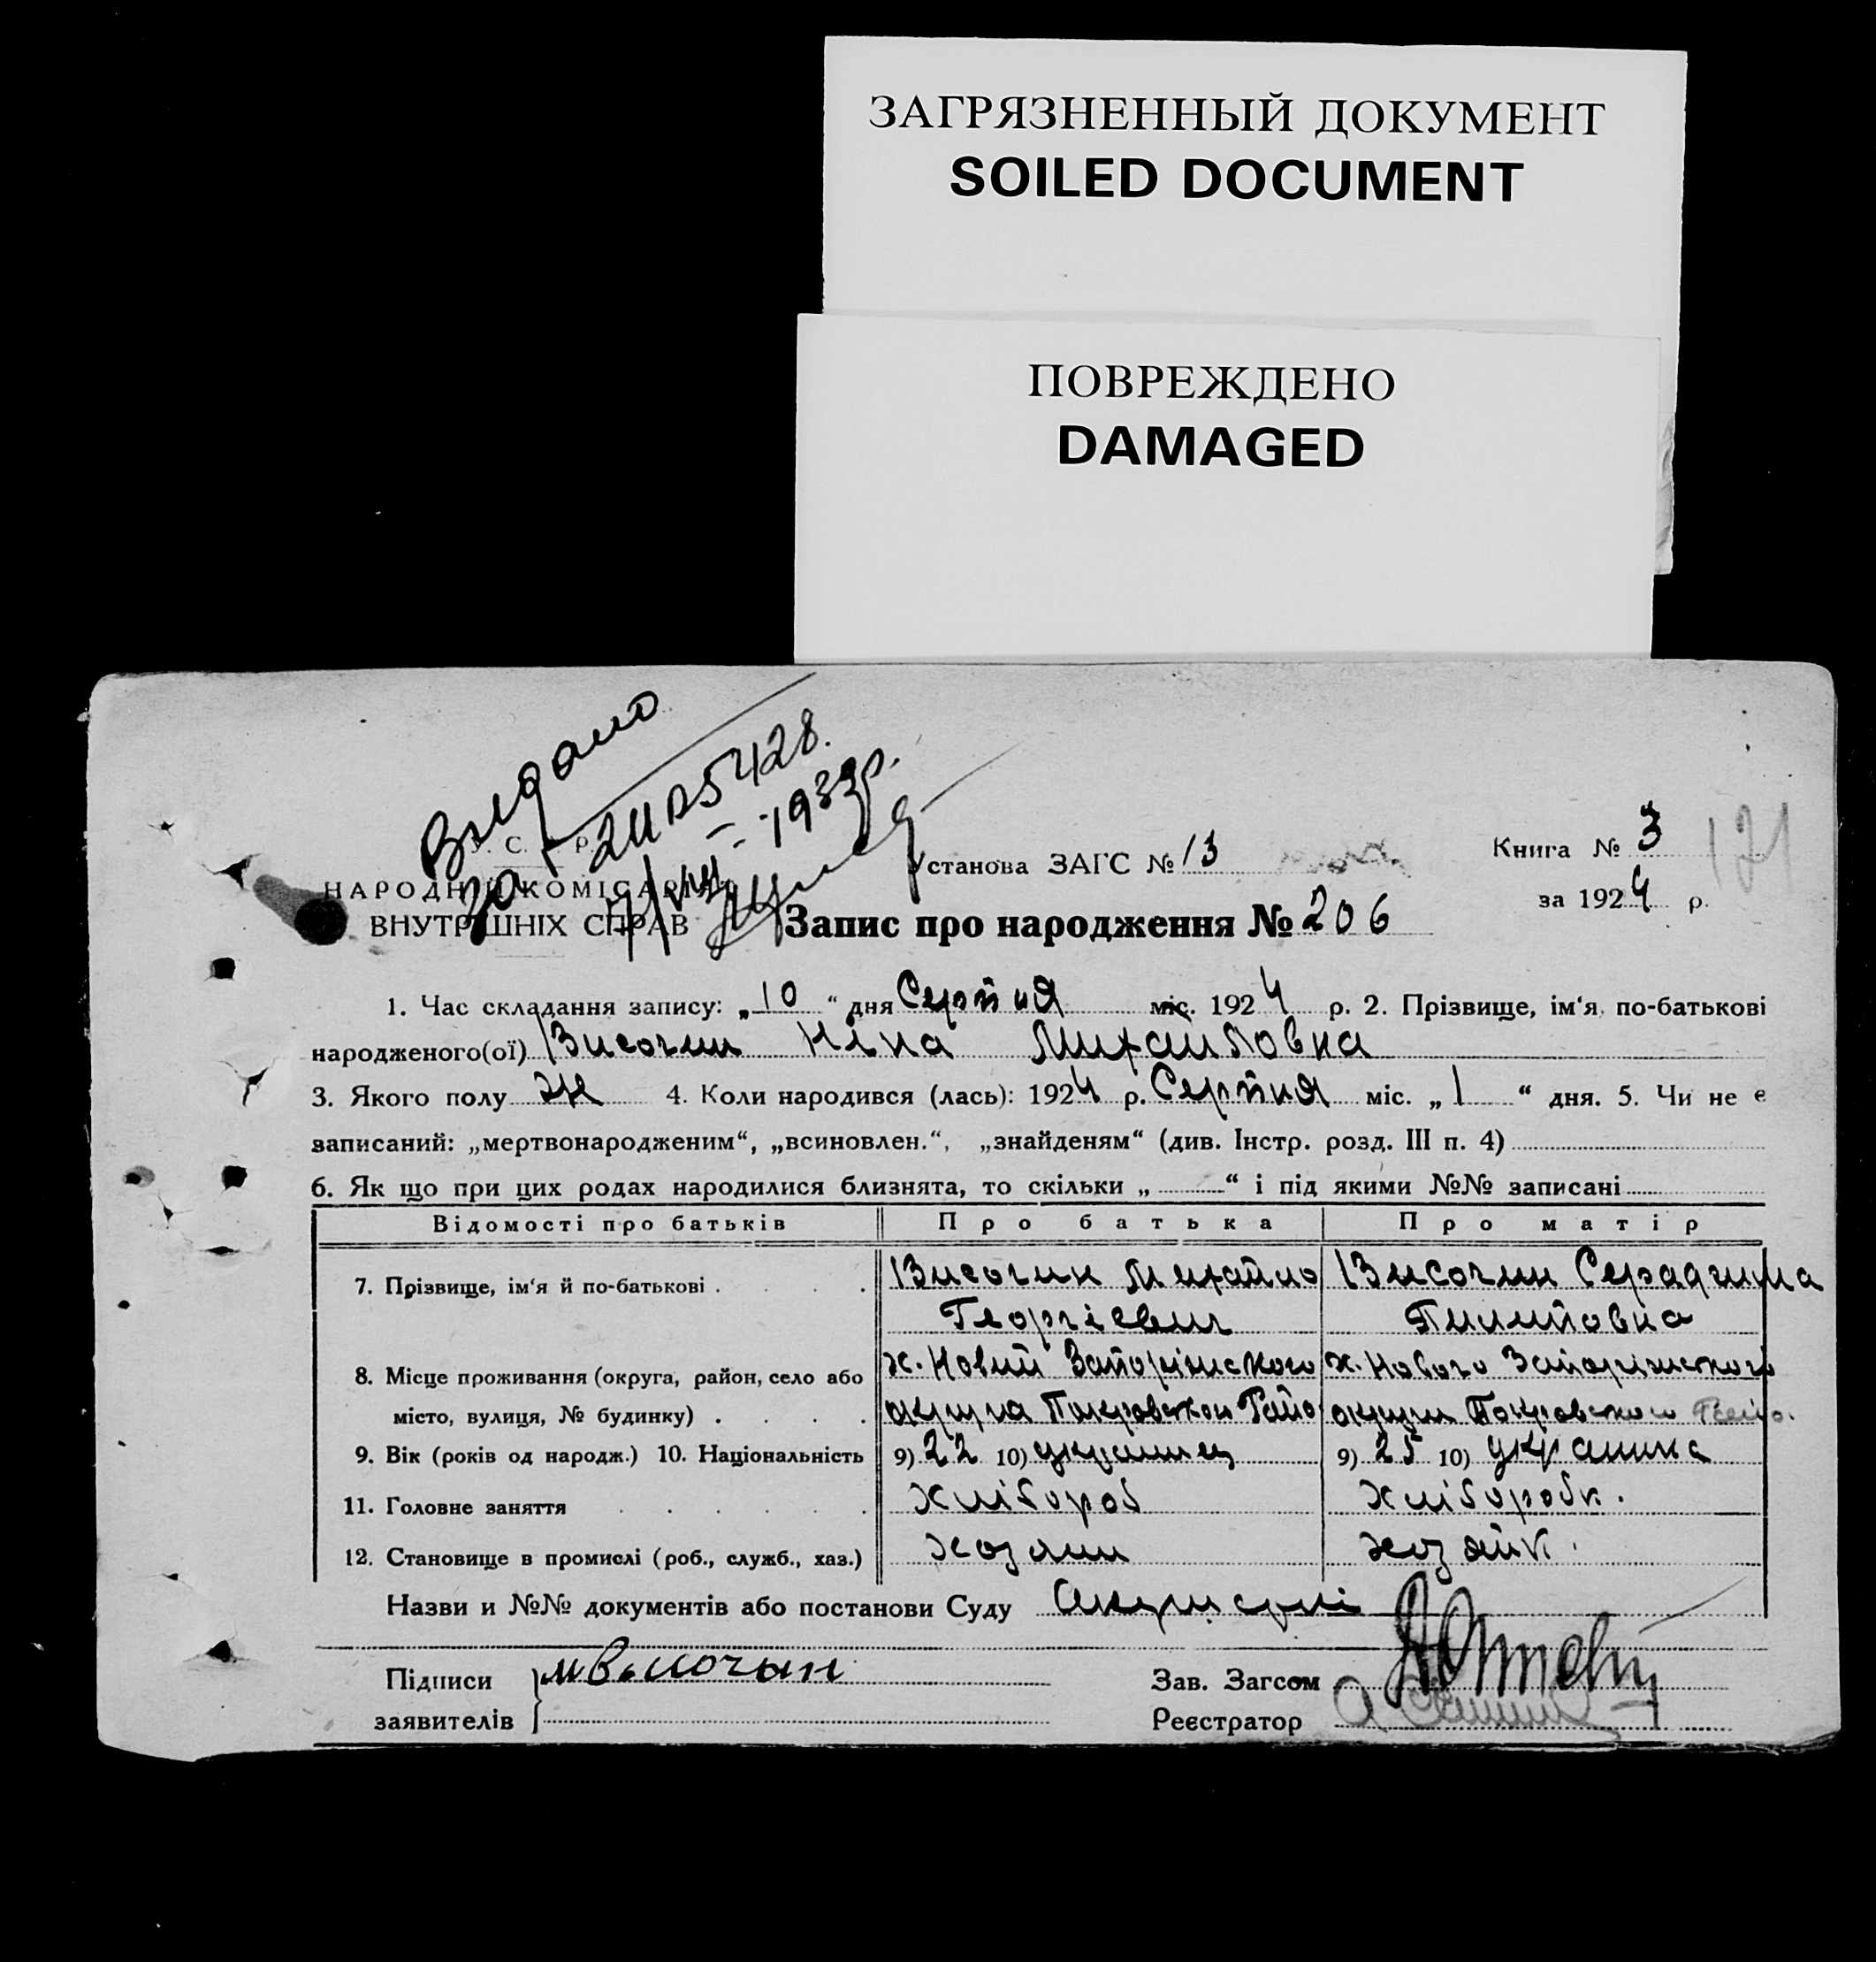 ЗАГРЯЗНЕННЫЙ ДОКУМЕНТ
SOILED DOCUMENT
ПОВРЕЖДЕНО
DAMAGED
Видано
за № 5428.
1933р.
У. С. Р. Р.
НАРОДНІЙ КОМІСАРІЯТ
ВНУТРІШНІХ СПРАВ
Установа ЗАГС № 13
Книга № 3
171
за 1924 р.
Запис про народження № 206
1. Час складання запису: „10“ дня Серпня міс. 1924 р. 2. Прізвище, ім‘я, по-батькові
народженого(ої) Височин Ніна Михайловна
3. Якого полу ж 4. Коли народився (лась): 1924 р. Серпня міс. „1“ дня. 5. Чи не є
записаний: „мертвонародженим“, „всиновлен.“, „знайденям“ (див. Інстр. розд. III п. 4)
6. Як що при цих родах народилися близнята, то скільки „ “ і під якими №№ записані
Відомості про батьків Про батька Про матір
7. Прізвище, ім‘я й по-батькові . . . . Височин Михайло Височин
Георгіевич Пилиповна
8. Місце проживання (округа, район, село або х. Новий Запоріжского х. Нового Запоріжского
місто, вулиця, № будинку) . . . . округа Покровской Райо округи Покровского Райо.
9. Вік (років од народж.) 10. Національність 9) 22 10) украинец 9) 25 10) украинка
11. Головне заняття . . . . . . хлібороб хліборобк.
12. Становище в промислі (роб., служб., хаз.) хозяин хозяйк.
Назви и №№ документів або постанови Суду
Підписи
заявителів
М Височин
Зав. Загсом
Реєстратор